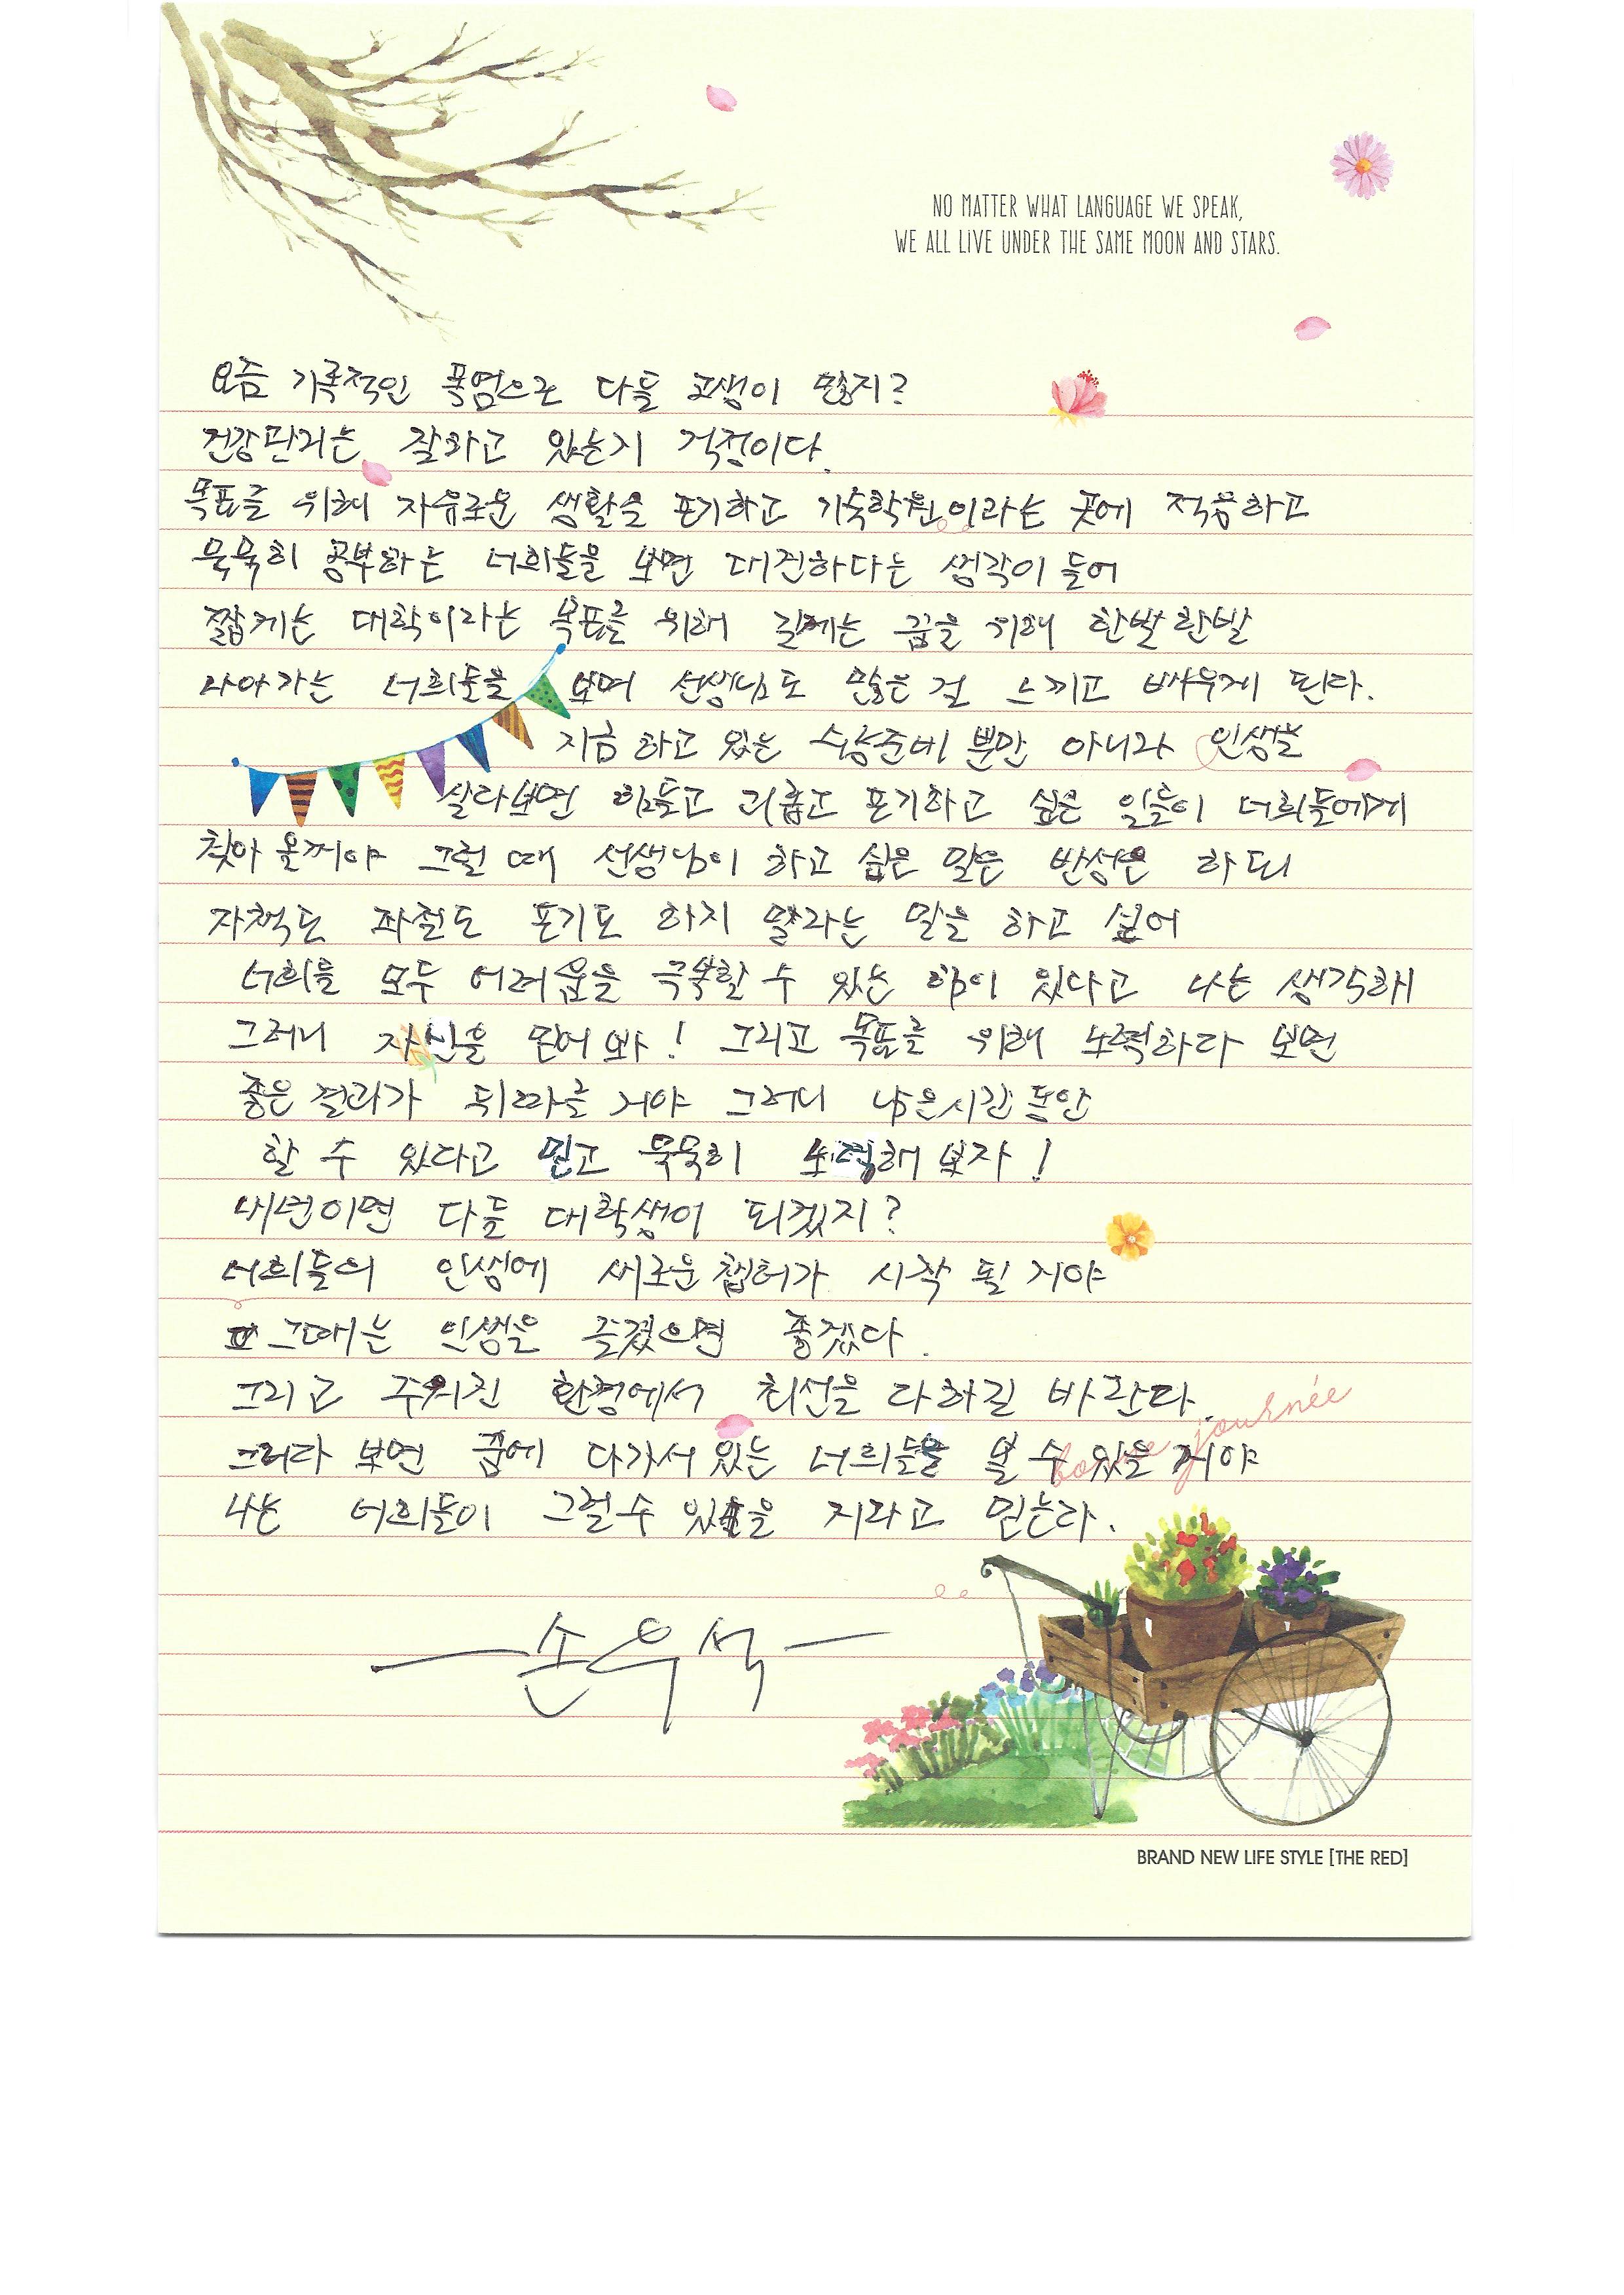 NO MATTER WHAT LANGUAGE WE SPEAK,
WE ALL LIVE UNDER THE SAME MOON AND STARS.
요즘 기록적인 폭염으로 다들 고생이 많지?
건강관리는 잘하고 있는지 걱정이다.
목표를 위해 자유로운 생활을 포기하고 기숙학원이라는 곳에 적응하고
묵묵히 공부하는 너희들을 보면 대견하다는 생각이 들어
짧게는 대학이라는 목표를 위해 길게는 꿈을 위해 한발한발
나아가는 너희들을 보며 선생님도 많은 걸 느끼고 배우게 된다.
지금 하고 있는 수능준비 뿐만 아니라 인생을
살다보면 힘들고 괴롭고 포기하고 싶은 일들이 너희들에게
찾아 올꺼야 그럴 때 선생님이 하고 싶은 말은 반성은 하되
자책도 좌절도 포기도 하지 말라는 말을 하고 싶어
너희들 모두 어려움을 극복할 수 있는 힘이 있다고 나는 생각해
그러니 자신을 믿어 봐! 그리고 목표를 위해 노력하다 보면
좋은 결과가 뒤따를 거야 그러니 남은시간 동안
할 수 있다고 믿고 묵묵히 노력해 보자!
내년이면 다들 대학생이 되겠지?
너희들의 인생에 새로운 챕터가 시작 될 거야
그때는 인생을 즐겼으면 좋겠다.
그리고 주어진 환경에서 최선을 다하길 바란다.
그러다 보면 꿈에 다가서 있는 너희들을 볼 수 있을 거야
bonne journée
나는 너희들이 그럴 수 있을 자라고 믿는다.
손우석
BRAND NEW LIFE STYLE [THE RED]